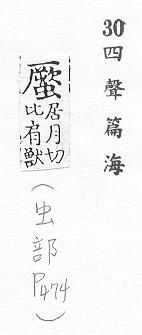 30四聲篇海
居月切
比肩獸
(虫部P474)